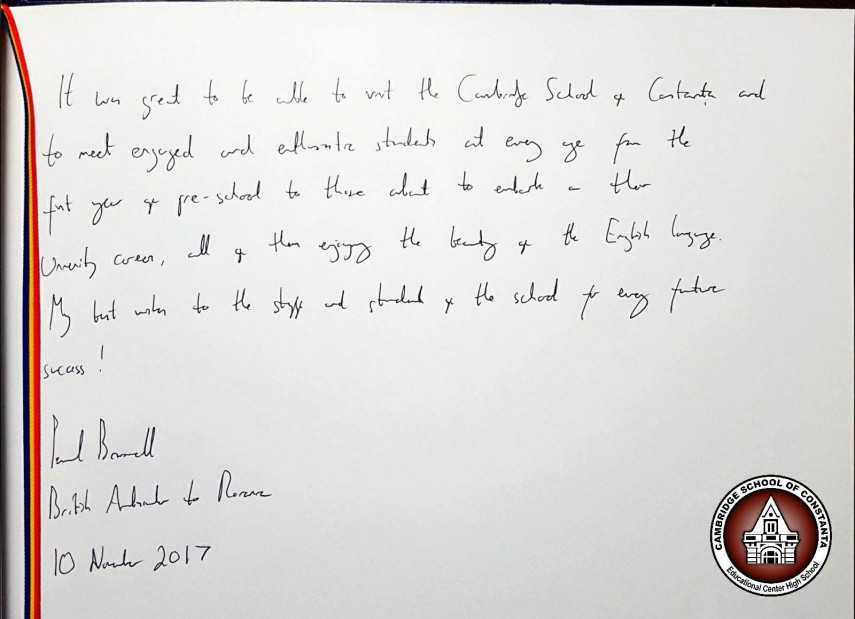 It was great to be able to visit the Cambridge School of Constanța and
to meet engaged and enthusiastic students at every age from the
first year of pre-school to those about to embark on their
University career, all of them enjoying the beauty of the English language.
My best wishes to the staff and students of the school for every future
success!
Paul Brummell
British Ambassador to Romania
10 November 2017
CAMBRIDGE SCHOOL OF CONSTANTA
Educational Center High School